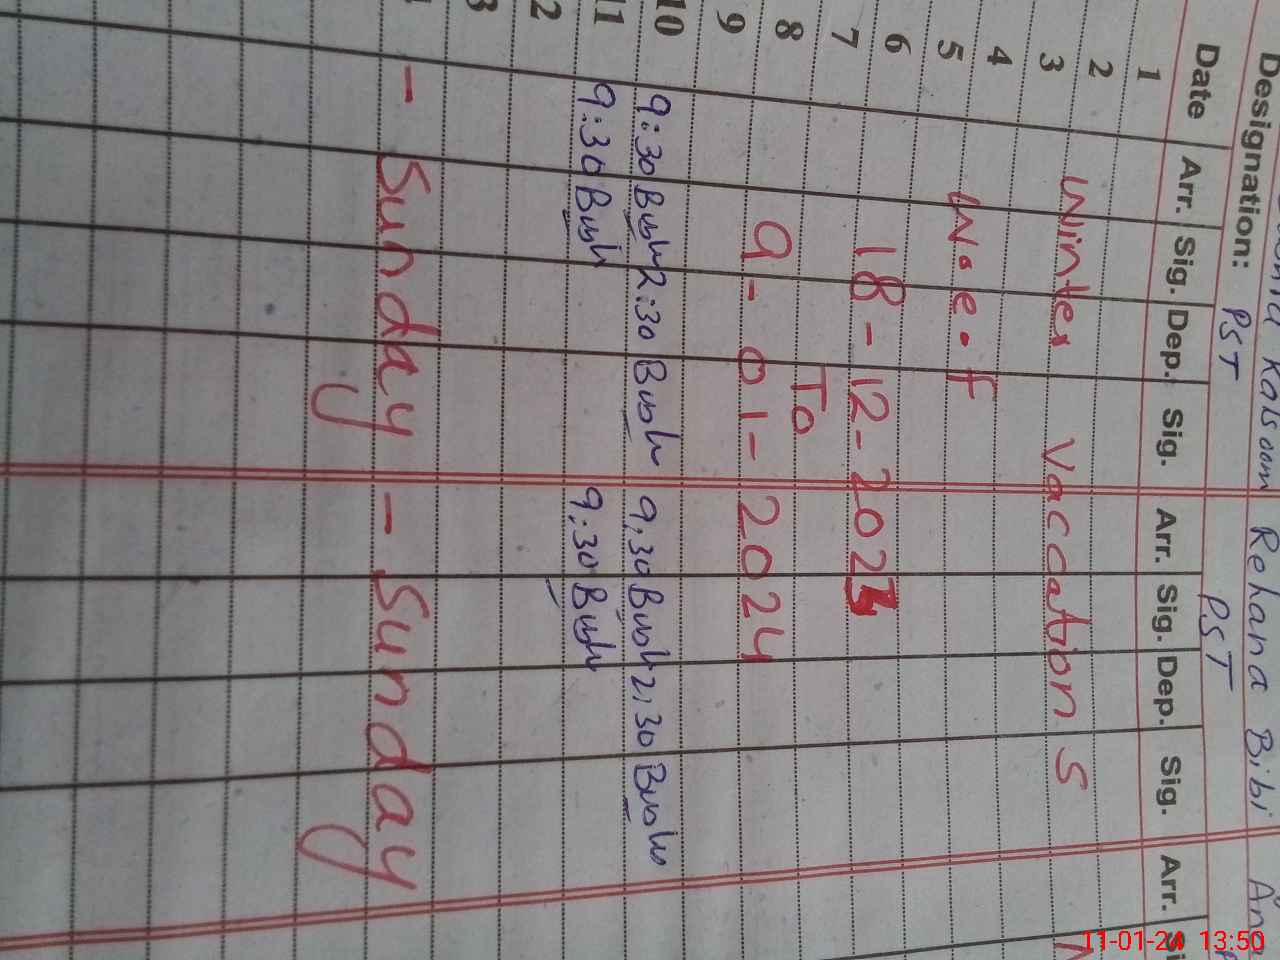 Kalsoom Rehana Bibi
Designation: PST PST
Date Arr. Sig. Dep. Sig. Arr. Sig. Dep. Sig. Arr.
1
2
3 Winter Vaccation s
4
5 W.e.f
6
7 18-12-2023
8 To
9 9-01-2024
10 9:30 2:30 9,30 2,30
11 9:30 9,30
12
- Sunday - Sunday
11-01-24 13:50